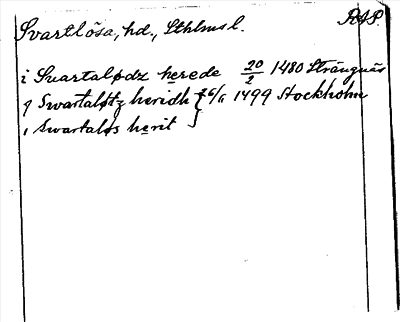 Svartlösa, hd., Sthlms l. RAP.
i Suartalødz herede 20/2 1480 Strängnäs
i Swartaløtz heridh } 26/6 1499 Stockholm
i Swartaløs herit